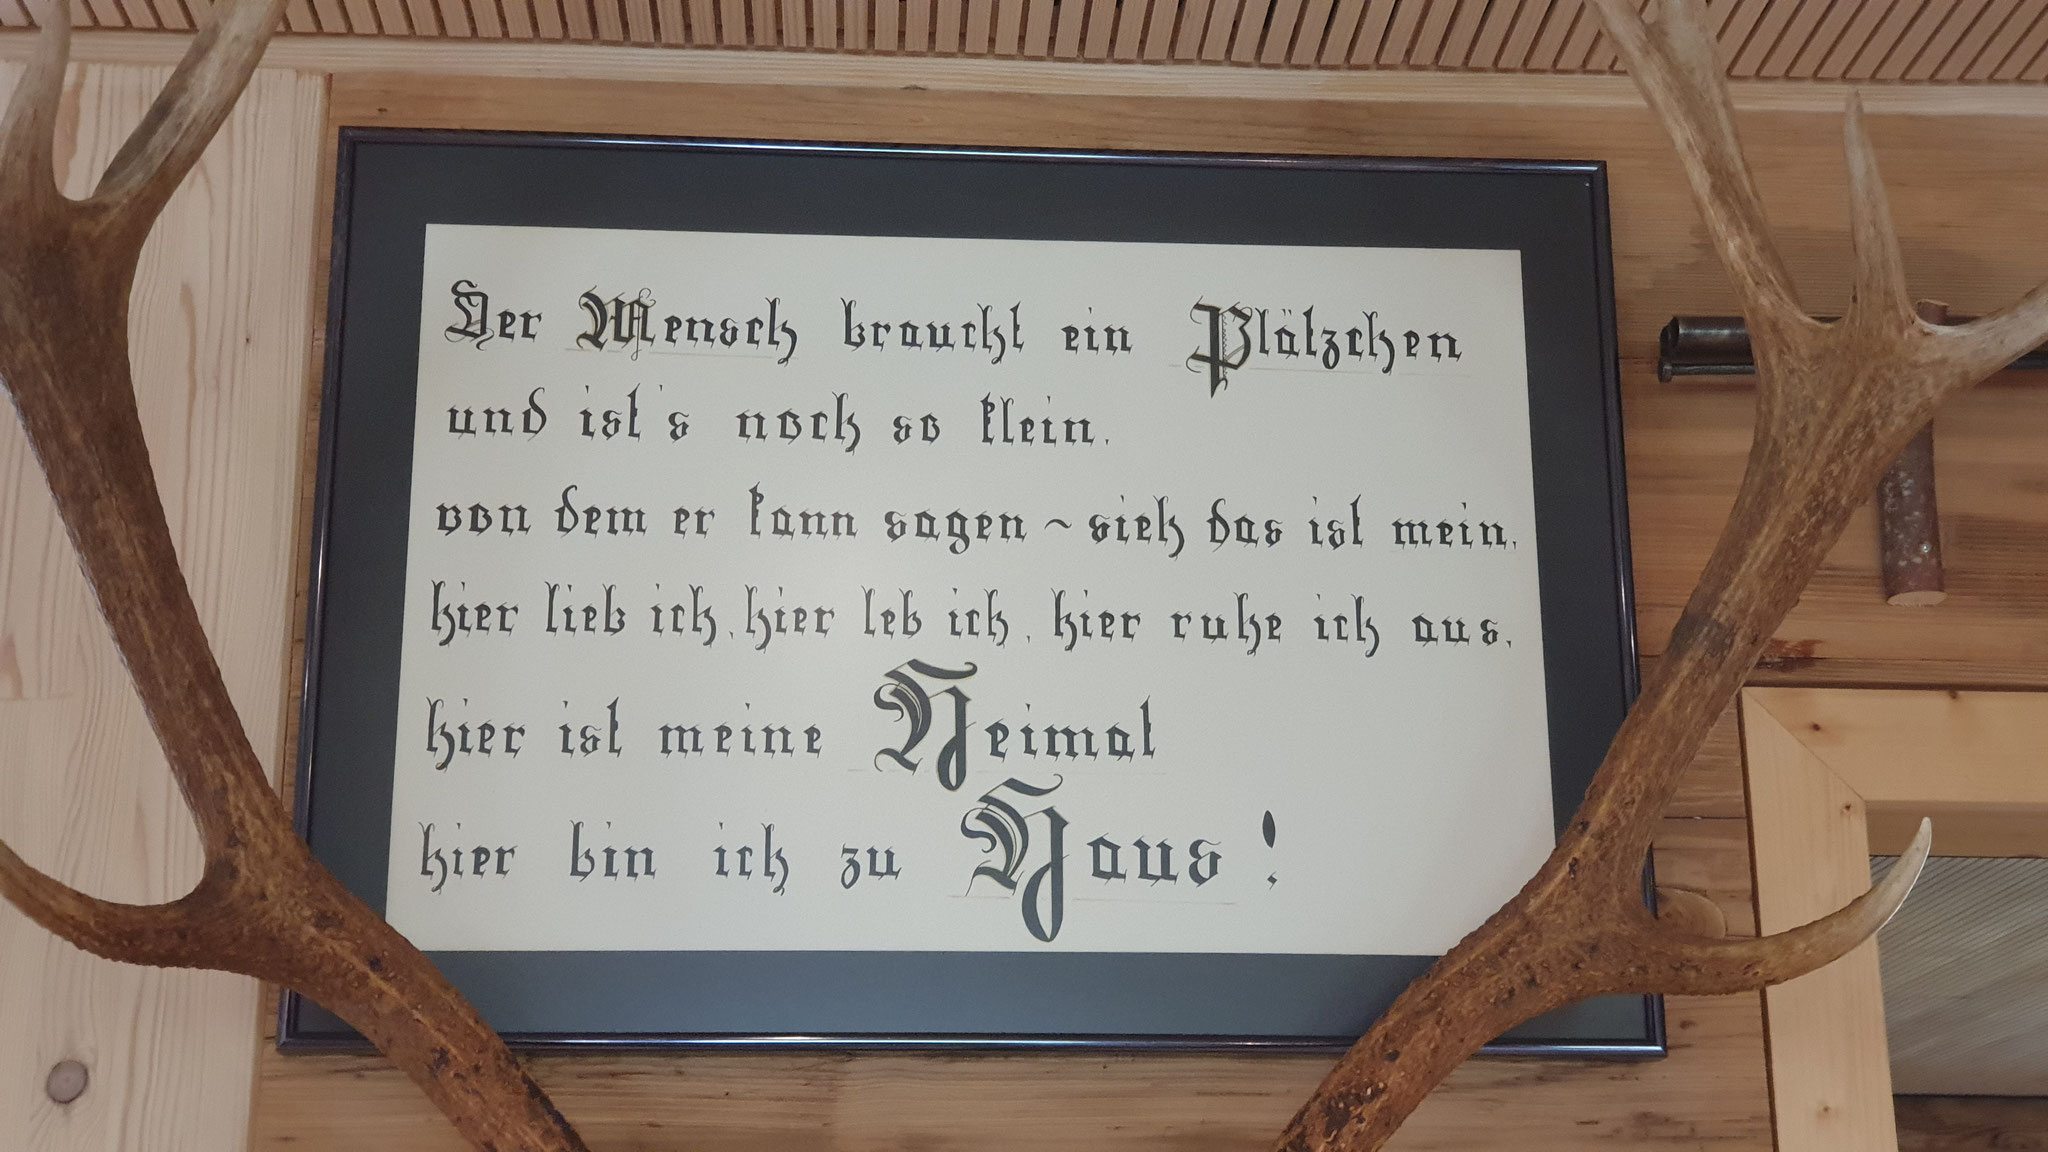 Der Mensch braucht ein Plätzchen
und ist's noch so klein,
von dem er kann sagen ~ sieh das ist mein,
hier lieb ich, hier leb ich, hier ruhe ich aus,
hier ist meine Heimat
hier bin ich zu Haus!